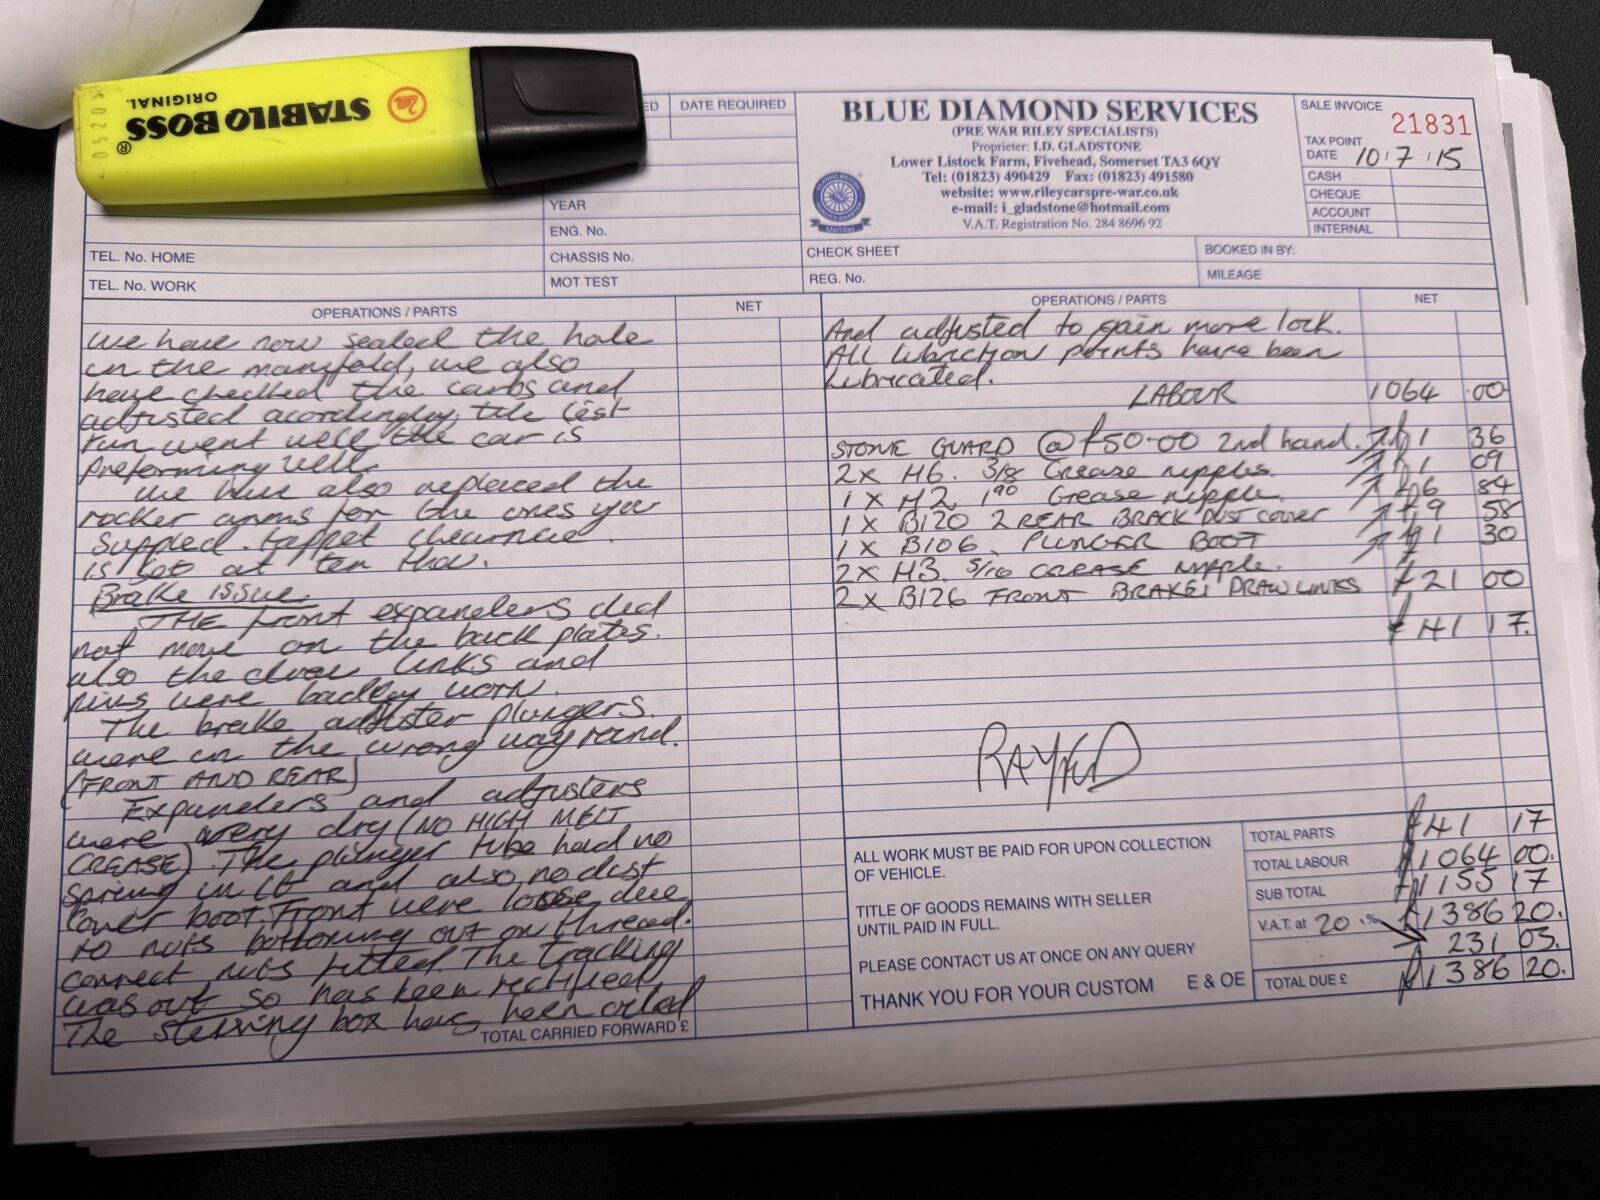 STABILO BOSS
ORIGINAL
®
05205
DATE REQUIRED
YEAR
ENG. No.
TEL. No. HOME
CHASSIS No.
TEL. No. WORK
MOT TEST
BLUE DIAMOND SERVICES
(PRE WAR RILEY SPECIALISTS)
Proprieter: I.D. GLADSTONE
Lower Listock Farm, Fivehead, Somerset TA3 6QY
Tel: (01823) 490429 Fax: (01823) 491580
website: www.rileycarspre-war.co.uk
e-mail: i_gladstone@hotmail.com
V.A.T. Registration No. 284 8696 92
Member
SALE INVOICE 21831
TAX POINT
DATE 10/7/15
CASH
CHEQUE
ACCOUNT
INTERNAL
CHECK SHEET
BOOKED IN BY:
REG. No.
MILEAGE
OPERATIONS / PARTS NET
we have now sealed the hole
in the manifold, we also
have checked the carbs and
adjusted acordingley, the test
run went well the car is
preforming well.
we have also replaced the
rocker arms for the ones you
suppled. tappet clearnce
is set at ten thou.
Brake issue
THE front expanders did
not move on the back plates.
also the draw links and
pins were badley worn.
The brake adjuster plungers
were in the wrong way round.
(FRONT AND REAR)
Expanders and adjusters
were very dry (NO HIGH MELT
GREASE). The plunger tube had no
spring in it and also no dust
cover boot. Front were loose due
to nuts bottoming out on thread.
correct nuts fitted. The tracking
was out so has been rectified
The steering box has been oiled
TOTAL CARRIED FORWARD £
OPERATIONS / PARTS NET
And adjusted to gain more lock.
All lubriction points have been
lubricated.
LABOUR 1064 00
STONE GUARD @ £50-00 2nd hand.
2x H6. 3/8 Grease nipples. £1 36
1 x H2 Grease nipple. £1 09
1 x B120 2 REAR BRACK DUST COVER £6 84
1 x B106. PLUNGER BOOT £9 58
2x H3. 5/16 GREASE NIPPLE. £1 30
2x B126 FRONT BRAKE DRAW LINKS £21 00
£41 17.
ALL WORK MUST BE PAID FOR UPON COLLECTION
OF VEHICLE.
TITLE OF GOODS REMAINS WITH SELLER
UNTIL PAID IN FULL.
PLEASE CONTACT US AT ONCE ON ANY QUERY
THANK YOU FOR YOUR CUSTOM E & OE
TOTAL PARTS £41 17
TOTAL LABOUR £1064 00.
SUB TOTAL £1155 17
V.A.T. at 20 % £1386 20.
231 03.
TOTAL DUE £ £1386 20.